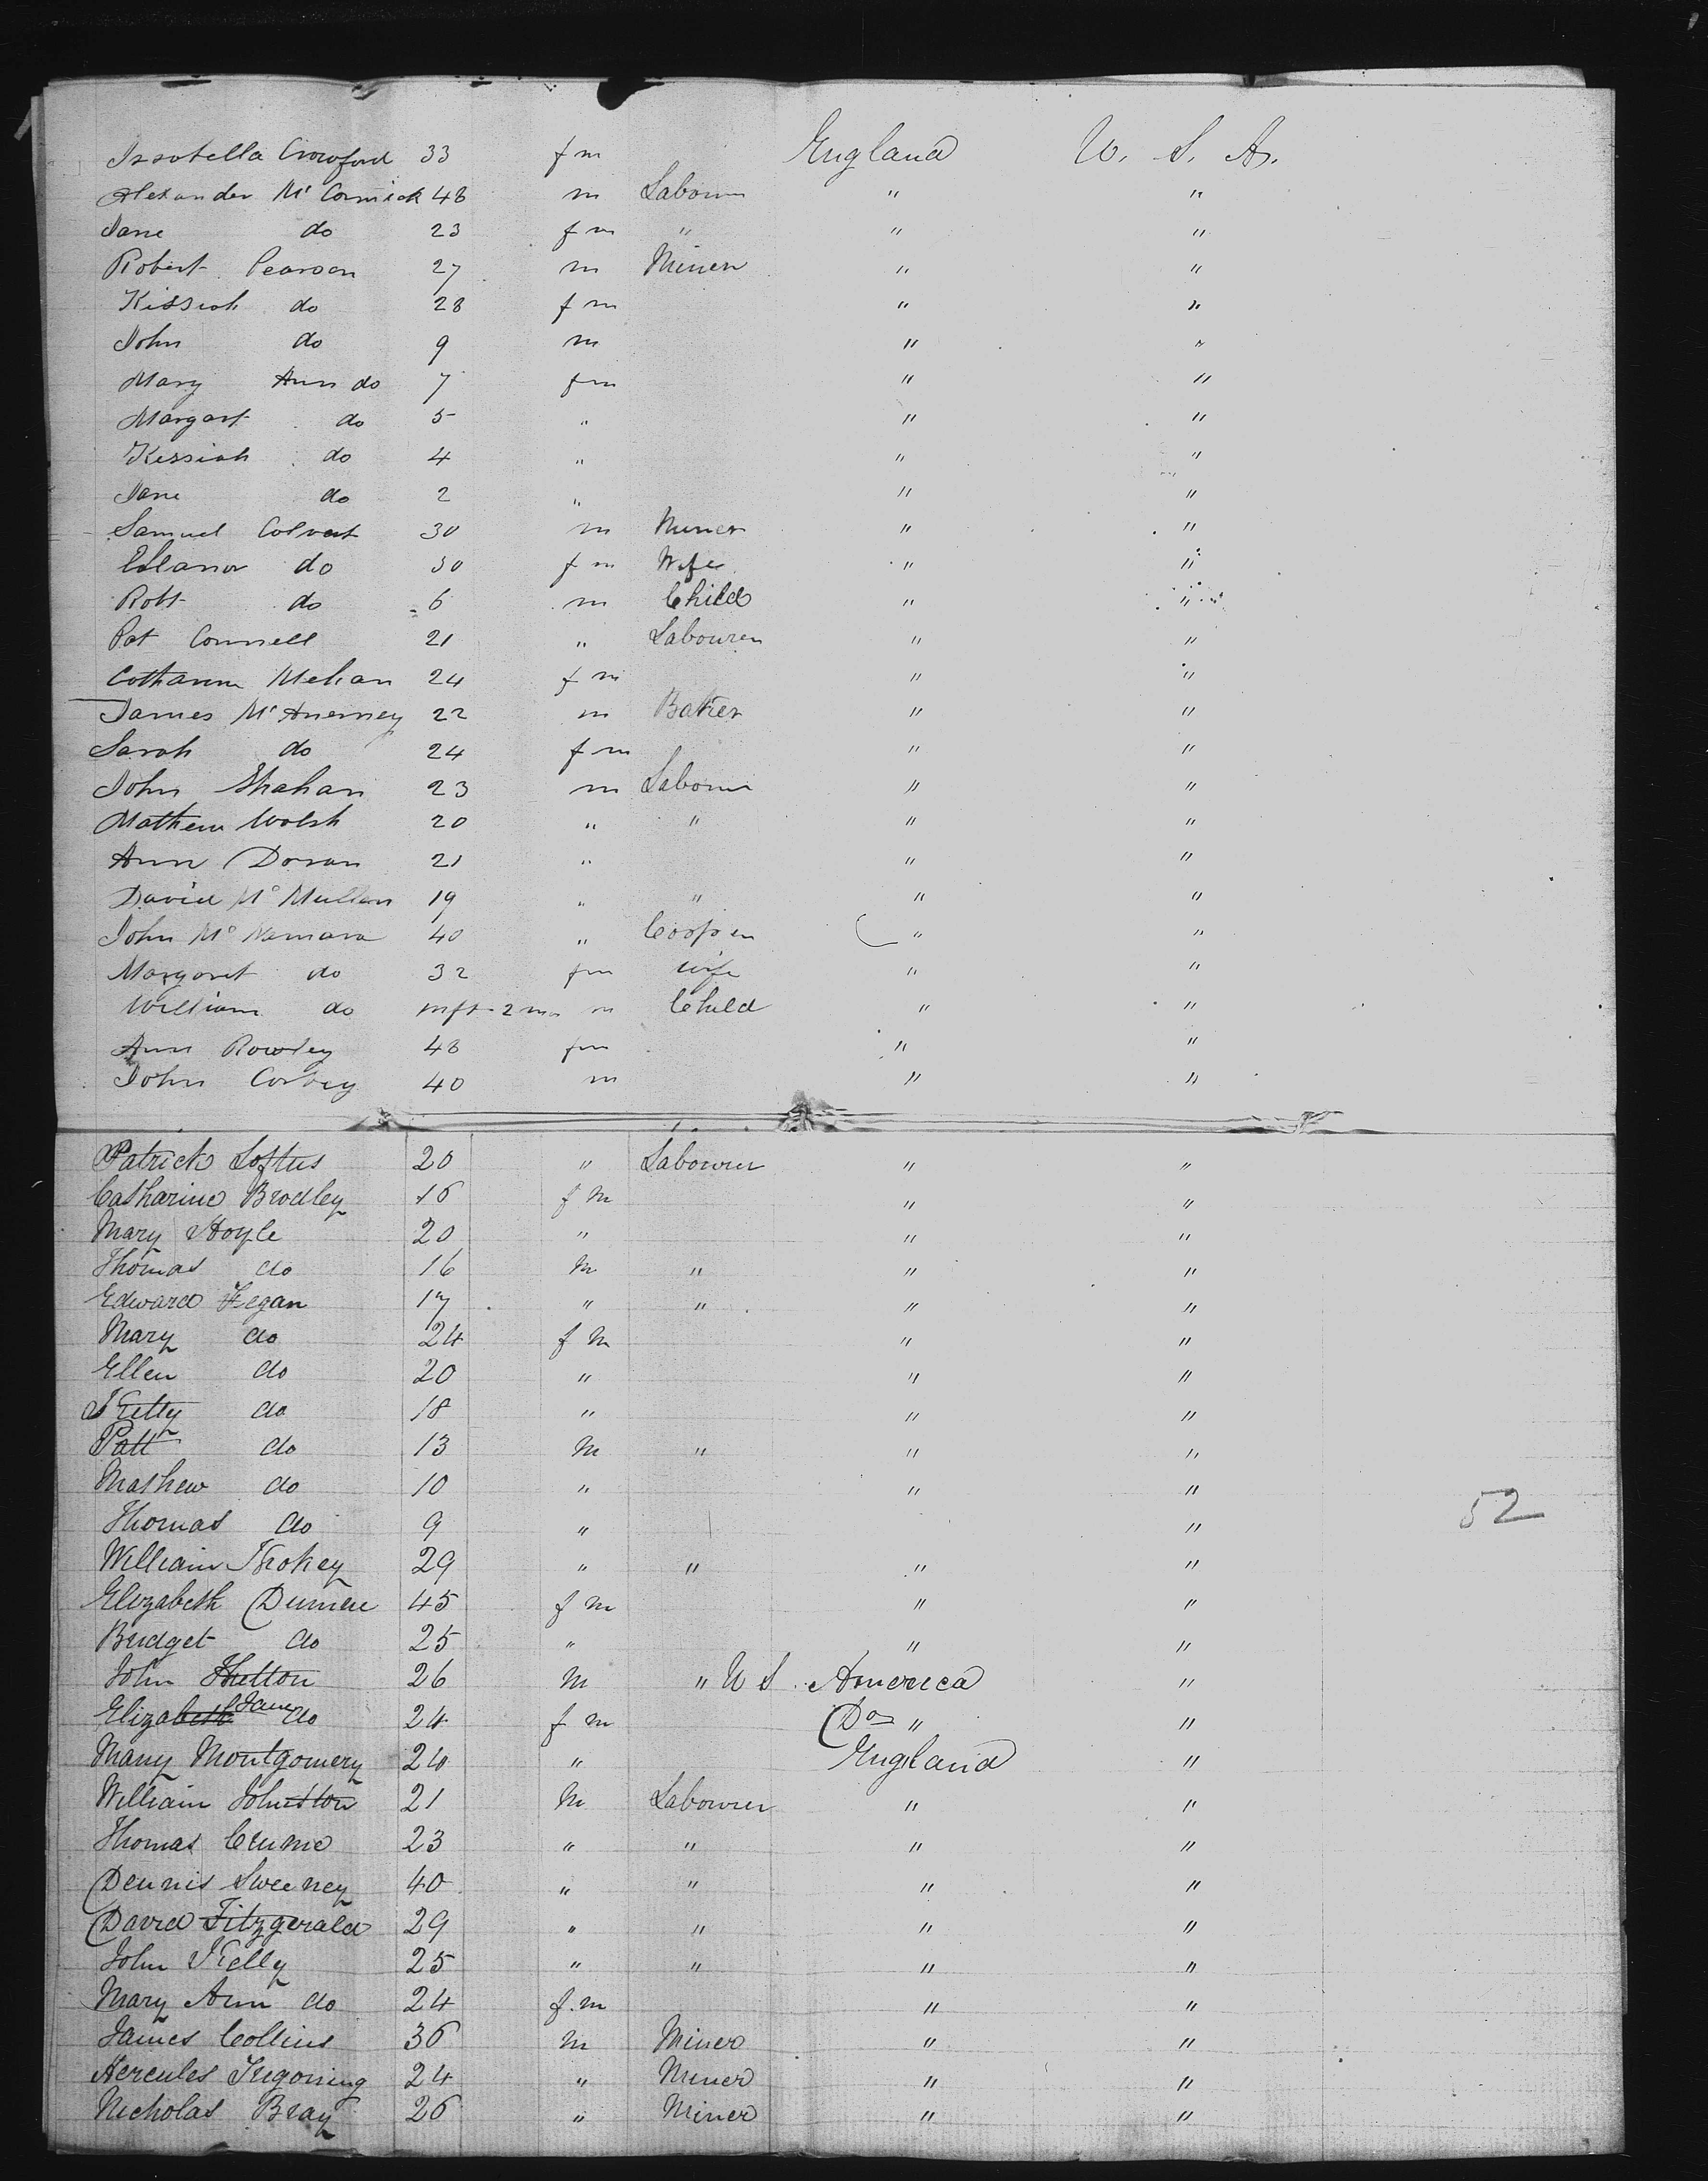 Issotella Crowford 33 f m England U. S. A.
Alexander Mc Cormick 48 m Labourer " "
Jane do 23 f m " " "
Robert Pearson 27 m Miner " "
Kissiah do 28 f m " "
John do 9 m " "
Mary Ann do 7 f m " "
Margart do 5 " " "
Kessiah do 4 " " "
Jane do 2 " " "
Samuel Colvert 30 m Miner " "
Eleanor do 30 f m Wife " "
Robt do 6 m Child " "
Pat Connell 21 " Labourer " "
Catharine Mehan 24 f m " "
James Mc Anerney 22 m Baker " "
Sarah do 24 f m " "
John Shahan 23 m Labourer " "
Mathew Walsh 20 " " " "
Ann Doran 21 " " "
David Mc Mullan 19 " " " "
John Mc Namara 40 " Cooper " "
Margaret do 32 f m wife " "
William do inft 2 mo m Child " "
Ann Rowley 48 f m " "
John Corbey 40 m " "
Patrick Loftus 20 " Labourer " "
Catharine Brodley 16 f m " "
Mary Hoyle 20 " " "
Thomas do 16 m " " "
Edward Fegan 17 " " " "
Mary do 24 f m " "
Ellen do 20 " " "
Kitty do 18 " " "
Patt do 13 m " " "
Mathew do 10 " " "
Thomas do 9 " " 52
William 29 " " " "
Elizabeth 45 f m " "
Bridget do 25 " " "
John Shelton 26 m " U S America "
Elizabeth Jane do 24 f m Do " "
Mary Montgomery 20 " England "
William Johnston 21 m Labourer " "
Thomas 23 " " " "
Dennis Sweeney 40 " " " "
David Fitzgerald 29 " " " "
John Kelly 25 " " " "
Mary Ann do 24 f. m " "
James Collins 36 m Miner " "
Hercules Tregoning 24 " Miner " "
Nicholas Bray 26 " Miner " "